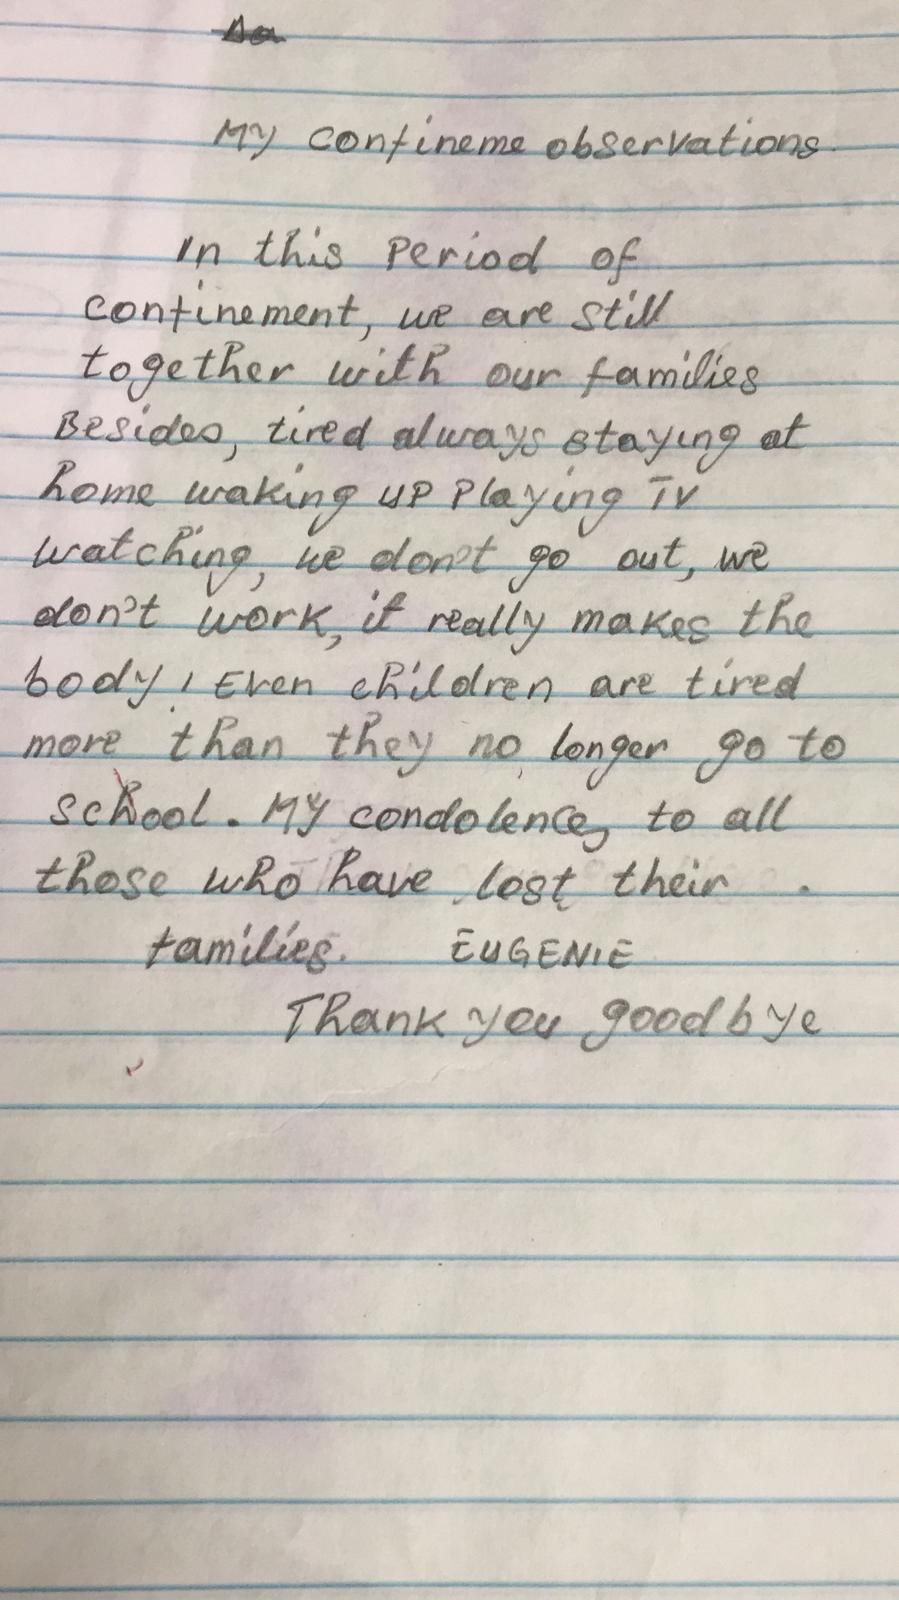 My confineme observations.
In this Period of
confinement, we are still
together with our families
Besides, tired always staying at
home waking up Playing TV
watching, we don't go out, we
don't work, it really makes the
body! Even children are tired
more than they no longer go to
school. My condolence, to all
those who have lost their .
families. EUGENIE
Thank you goodbye